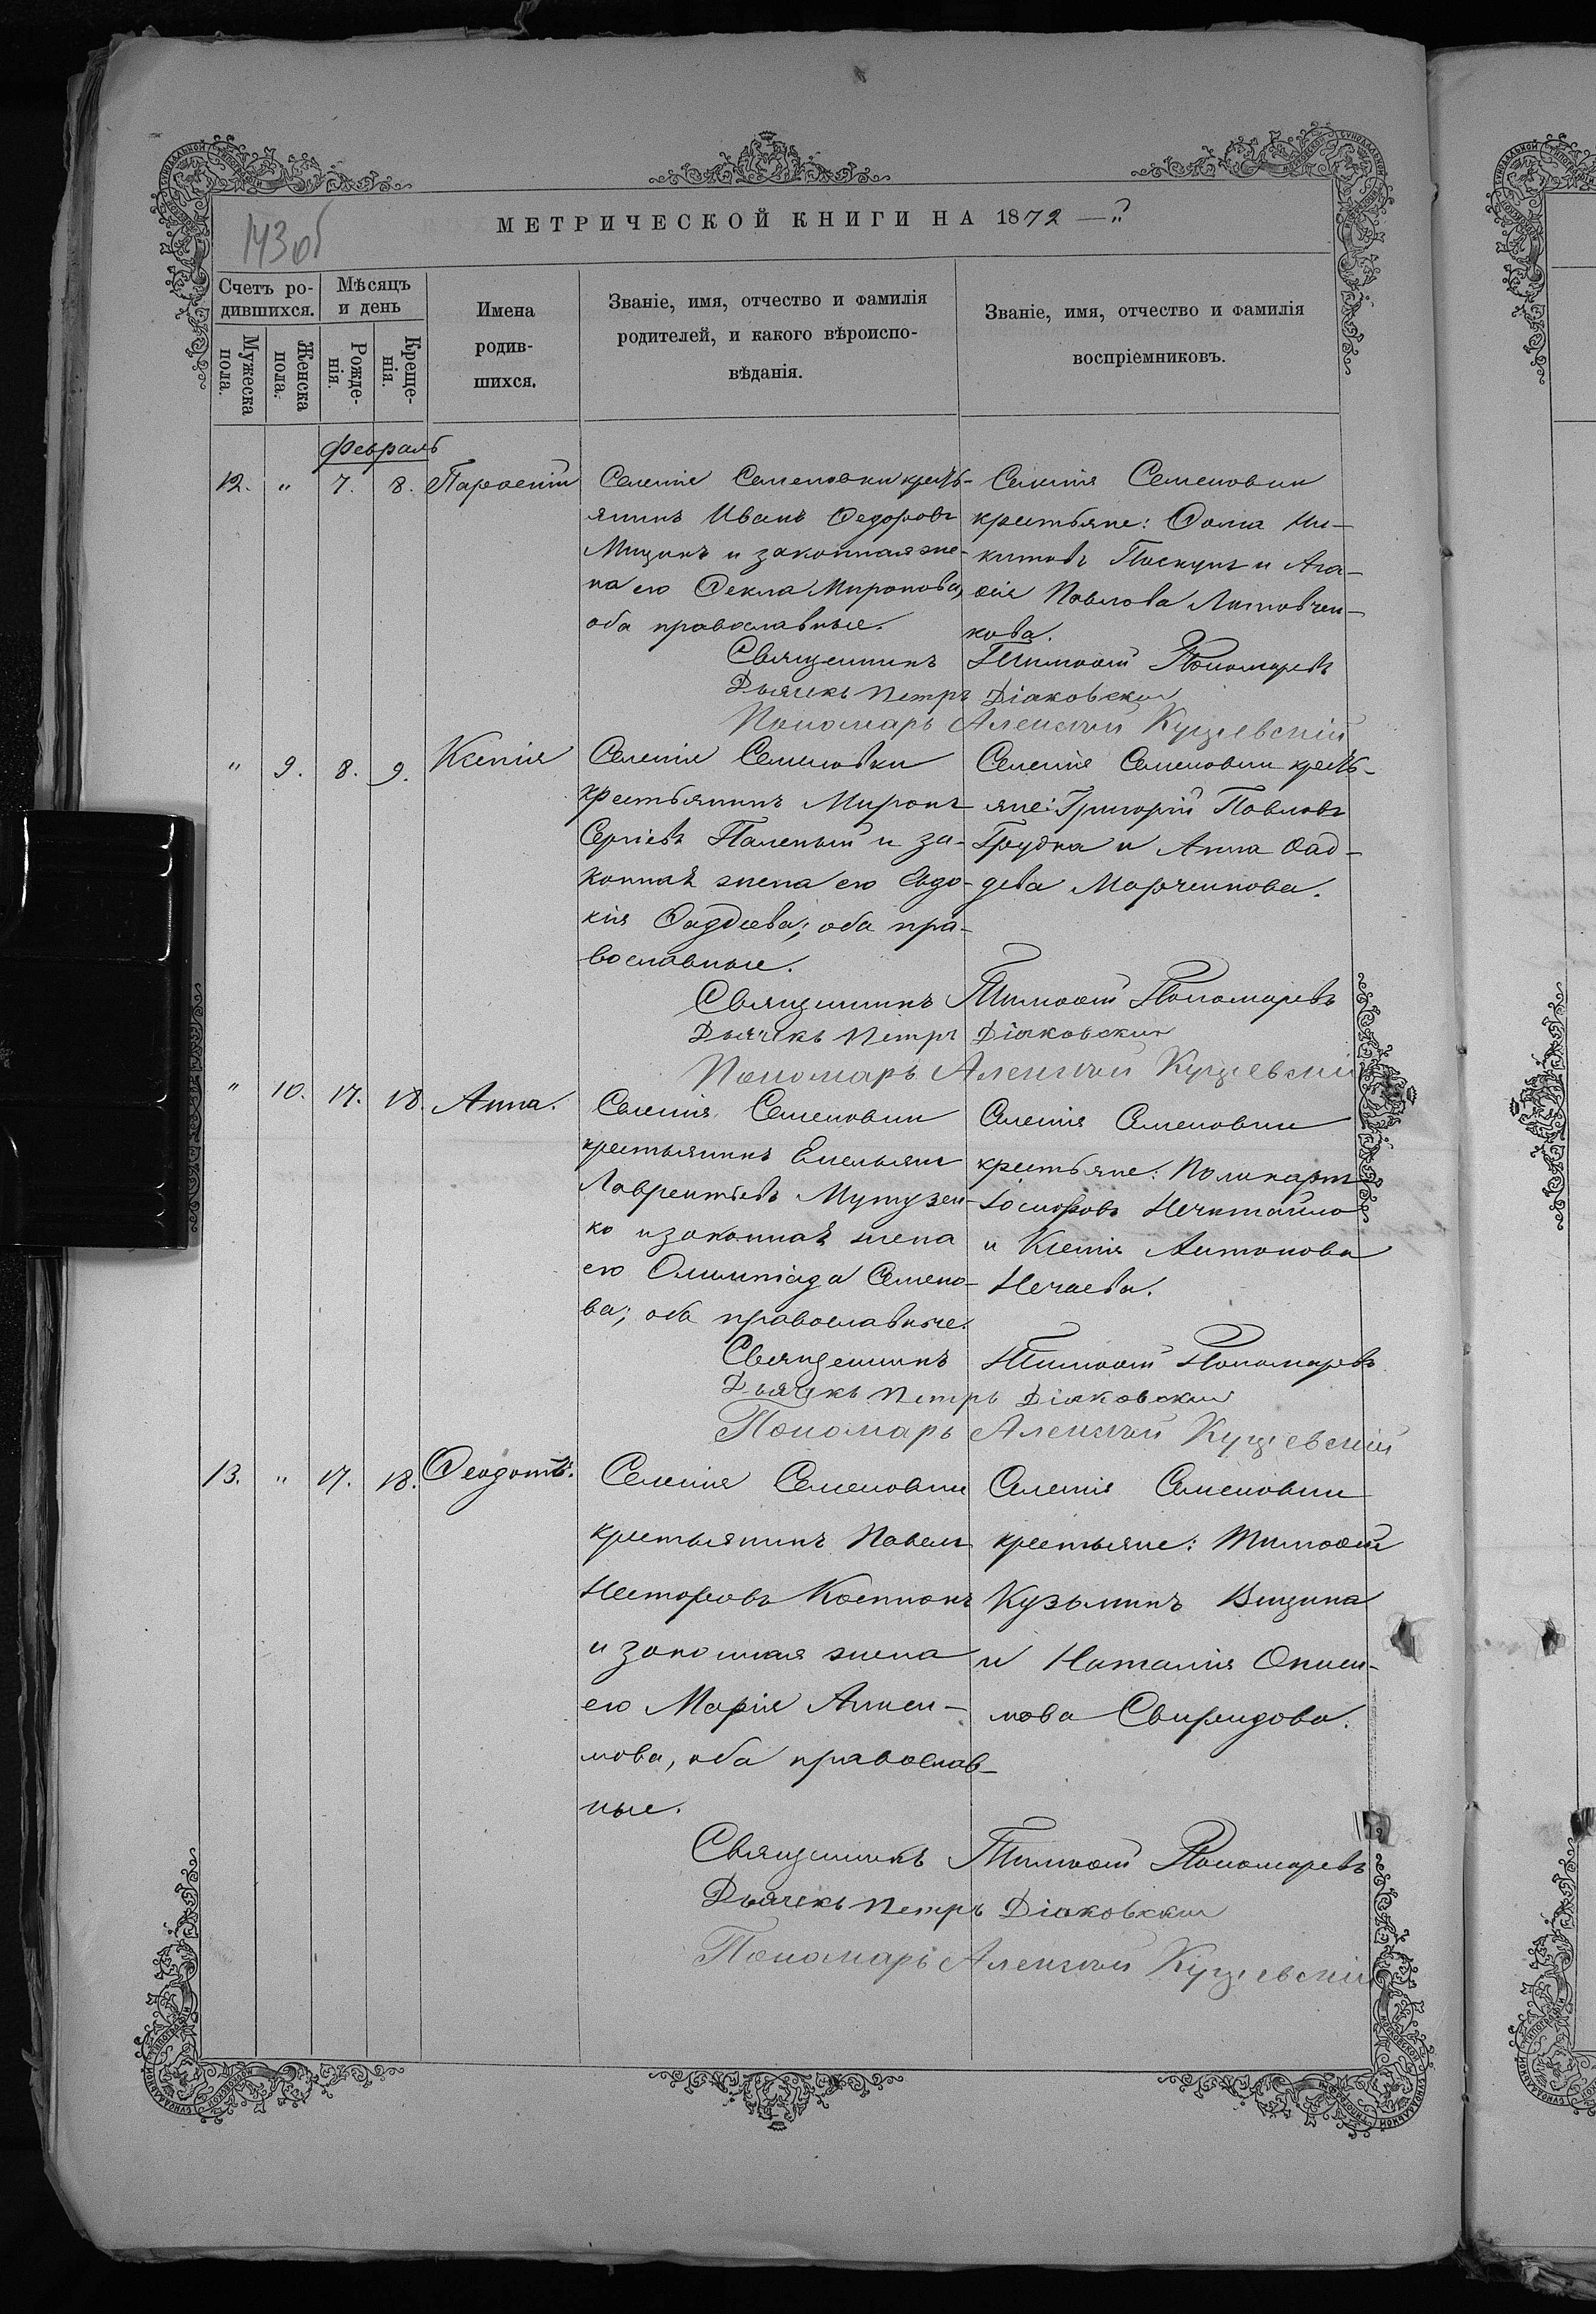 143об
МЕТРИЧЕСКОЙ КНИГИ НА 1872
Счетъ ро-
дившихся.
Мѣсяцъ
и день
Мужеска
пола.
Женска
пола.
Рожде-
нія.
Креще-
нія.
Имена
родив-
шихся.
Званіе, имя, отчество и фамилія
родителей, и какого вѣроиспо-
вѣданія.
Званіе, имя, отчество и фамилія
воспріемниковъ.
Февраль
12. " 7. 8. Парѳеній
Селенія Семеновки крестъ-
янинъ Иванъ Ѳедоровъ
и законная же-
на его Ѳекла Миронова,
оба православные.
Селенія Семеновки
крестьяне: Ѳома Ни-
китовъ Пискунъ и Ага-
ѳія Павлова Литовчен-
кова.
Священникъ Тимоѳей Пономаревъ
Дьячекъ Петръ Діаковскій
Пономарь Алексѣй Кущевскій
" 9. 8. 9. Ксенія
Селенія Семеновки
крестьянинъ Миронъ
Сергіевъ Паленый и за-
конная жена его Евдо-
кія Ѳаддеева; оба пра-
вославные.
Селенія Семеновки кресть-
яне: Григорій Павловъ
Грудка и Анна Ѳад-
деева Марченкова.
Священникъ Тимоѳей Пономаревъ
Дьячекъ Петръ Діаковскій
Пономарь Алексѣй Кущевскій
" 10. 17. 18. Анна.
Селенія Семеновки
крестьянинъ Емельянъ
Лаврентьевъ Мутузен-
ко и законная жена
его Олимпіада Семено-
ва; оба православные.
Селенія Семеновки
крестьяне: Поликарпъ
Іосифовъ Нечитайло
и Ксенія Антонова
Нечаева.
Священникъ Тимоѳей Пономаревъ
Дьячекъ Петръ Діаковскій
Пономарь Алексѣй Кущевскій
13. " 17. 18. Ѳеодотъ.
Селенія Семеновки
крестьянинъ Павелъ
Несторовъ
и законная жена
его Марія Аким-
мова, оба православ-
ные.
Селенія Семеновки
крестьяне: Тимоѳей
Кузьминъ
и Наталія
Свиридова.
Священникъ Тимоѳей Пономаревъ
Дьячекъ Петръ Діаковскій
Пономарь Алексѣй Кущевскій